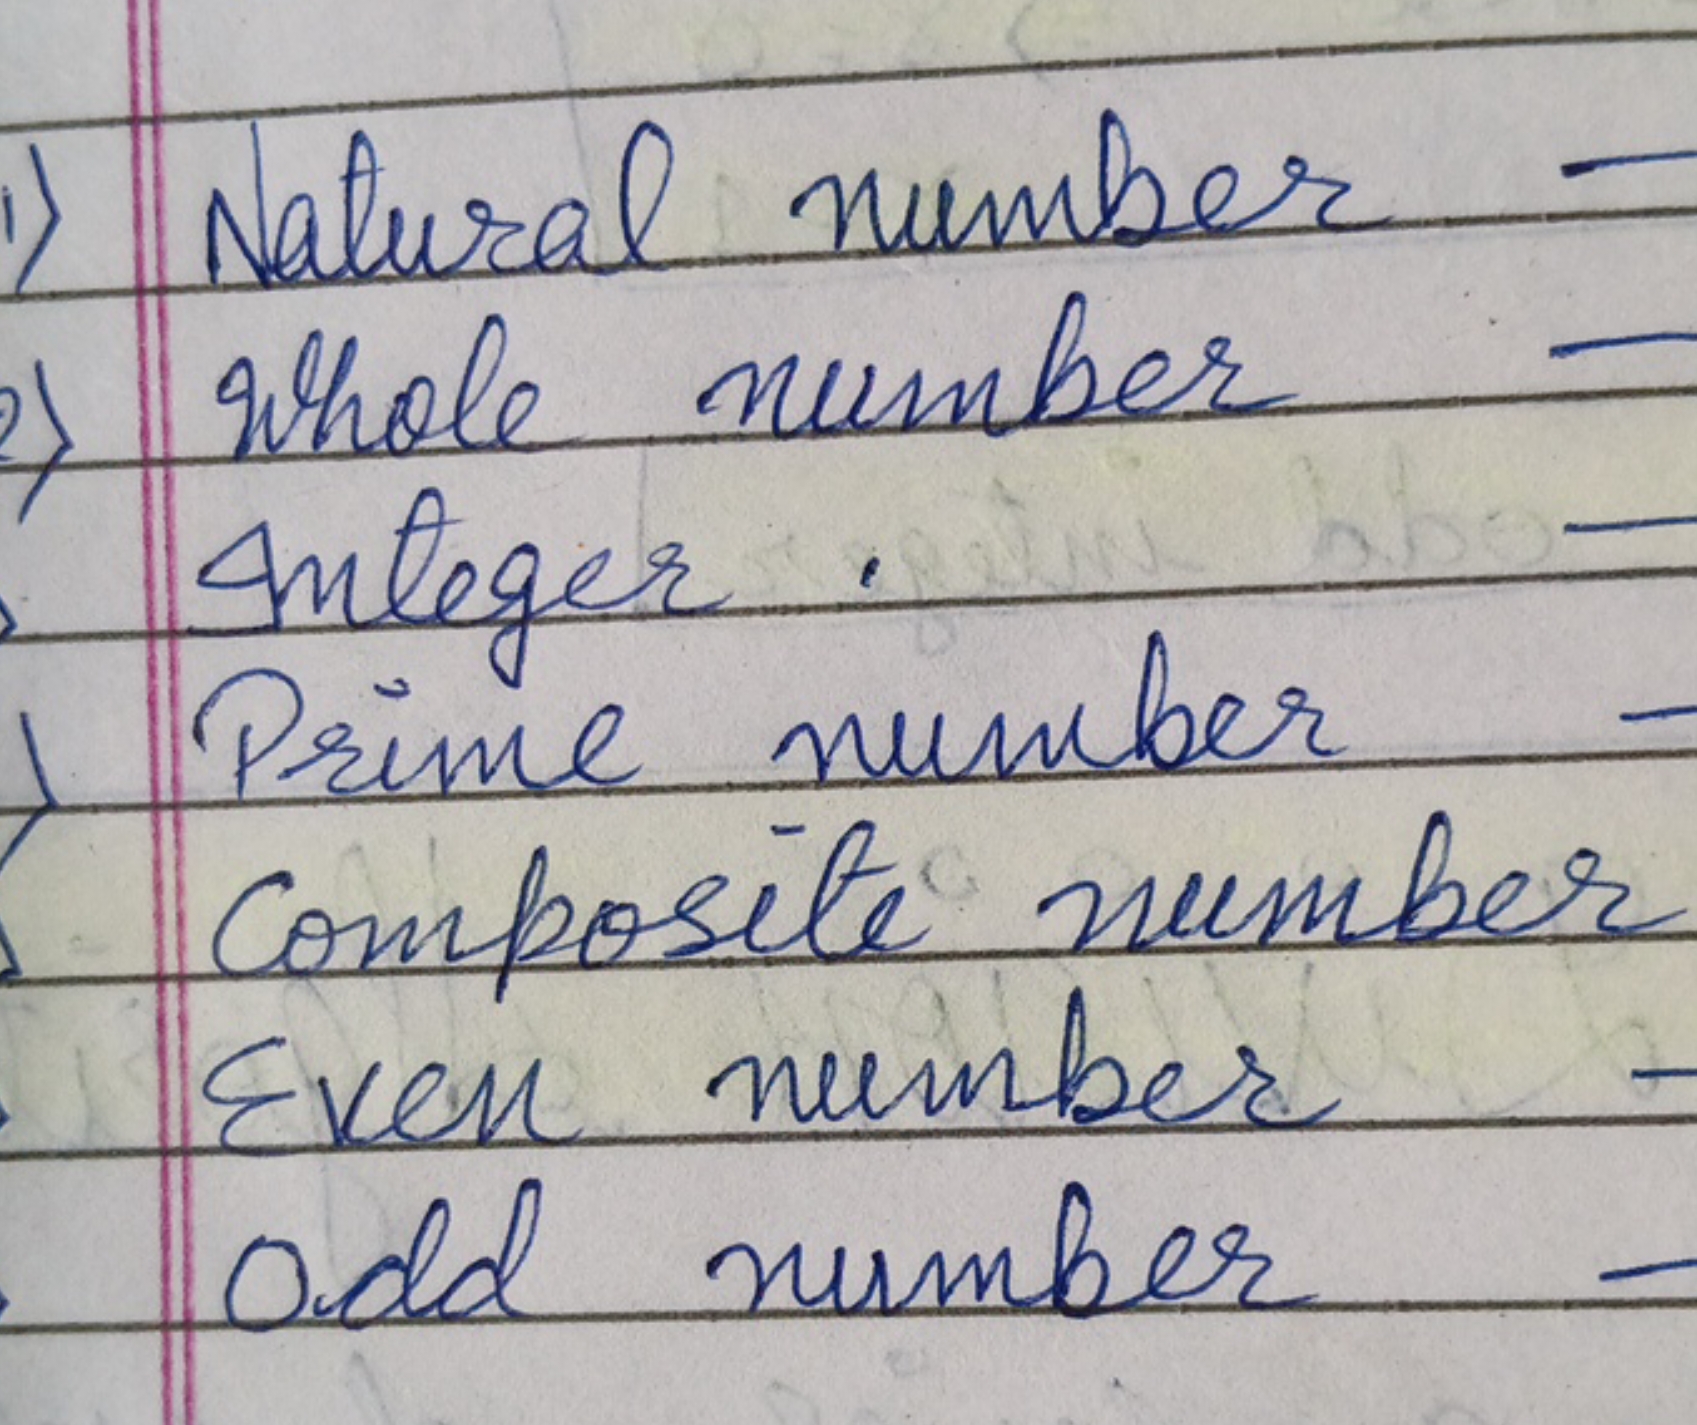 1) Natural number —
2) Whole number —
Integer . —
Prime number —
Composite number
Even number —
Odd number —